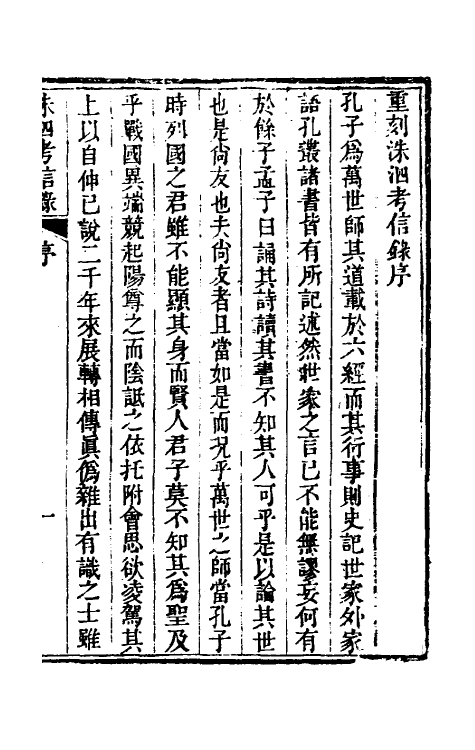 重刻洙泗考信錄序
孔子爲萬世師其道載於六經而其行事則史記世家外家
語孔叢諸書皆有所記述然世家之言已不能無謬妄何有
於餘子孟子曰誦其詩讀其書不知其人可乎是以論其世
也是尙友也夫尙友者且當如是而況乎萬世之師當孔子
時列國之君雖不能顯其身而賢人君子莫不知其爲聖及
乎戰國異端競起陽尊之而陰詆之依托附會思欲凌駕其
上以自伸已說二千年來展轉相傳眞僞雜出有識之士雖
洙泗考信錄 序 一